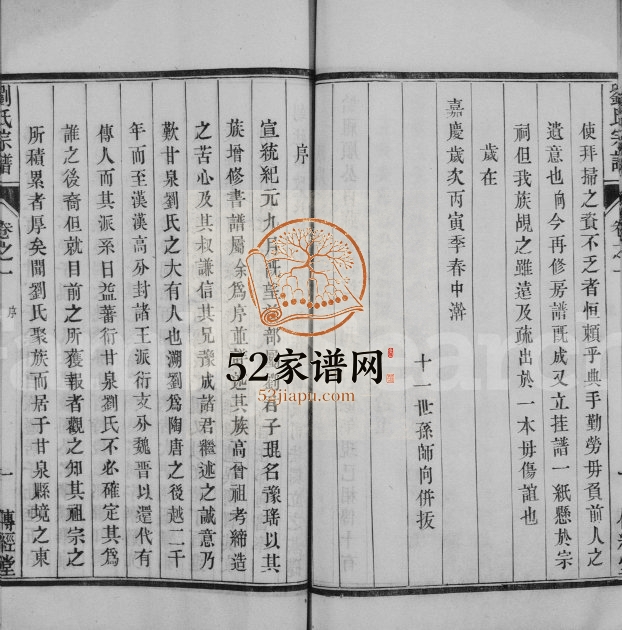 使拜掃之資不乏者恒賴乎典手勤勞毋負前人之
遺意也向今再修房譜既成又立挂譜一紙懸於宗
祠但我族覘之雖遠及疏出於一本毋傷誼也
歲在
嘉慶歲次丙寅季春中澣
十一世孫師向併拔
劉氏宗譜
卷之一
序
宣統紀元九月既望
君子琨名豫瑤以其
族增修書譜屬余為序並
其族高曾祖考締造
之苦心及其叔謙信其兄豫咸諸君繼述之誠意乃
歎甘泉劉氏之大有人也溯劉為陶唐之後越二千
年而至漢漢高分封諸王派衍支分魏晉以還代有
傳人而其派系日益蕃衍甘泉劉氏不必確定其為
誰之後裔但就目前之所獲報者觀之知其祖宗之
所積累者厚矣聞劉氏聚族而居于甘泉縣境之東
劉氏宗譜
卷之一
序
一
傳經堂
52家谱网
52jiapu.com